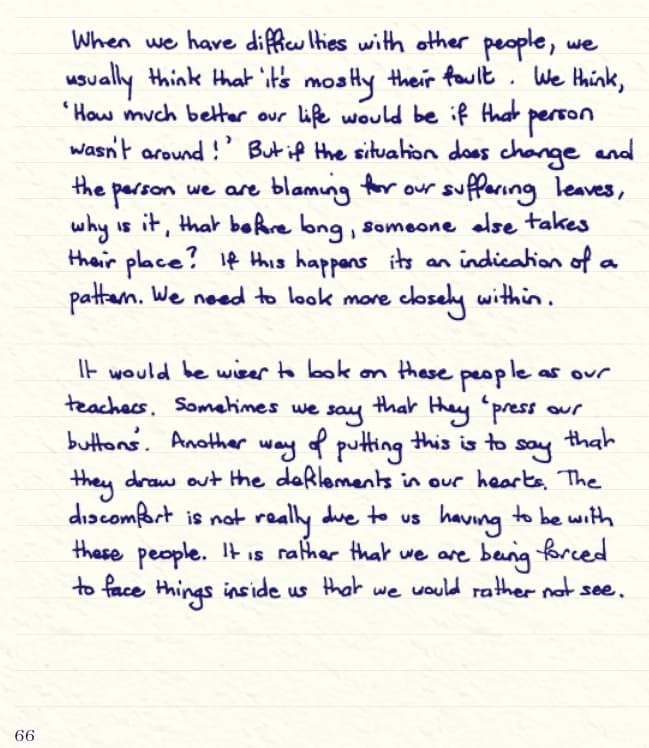 When we have difficulties with other people, we
usually think that 'it's mostly their fault. We think,
'How much better our life would be if that person
wasn't around!' But if the situation does change and
the person we are blaming for our suffering leaves,
why is it, that before long, someone else takes
their place? If this happens its an indication of a
pattern. We need to look more closely within.
It would be wiser to look on these people as our
teachers. Sometimes we say that they 'press our
buttons'. Another way of putting this is to say that
they draw out the defilements in our hearts. The
discomfort is not really due to us having to be with
these people. It is rather that we are being forced
to face things inside us that we would rather not see.
66